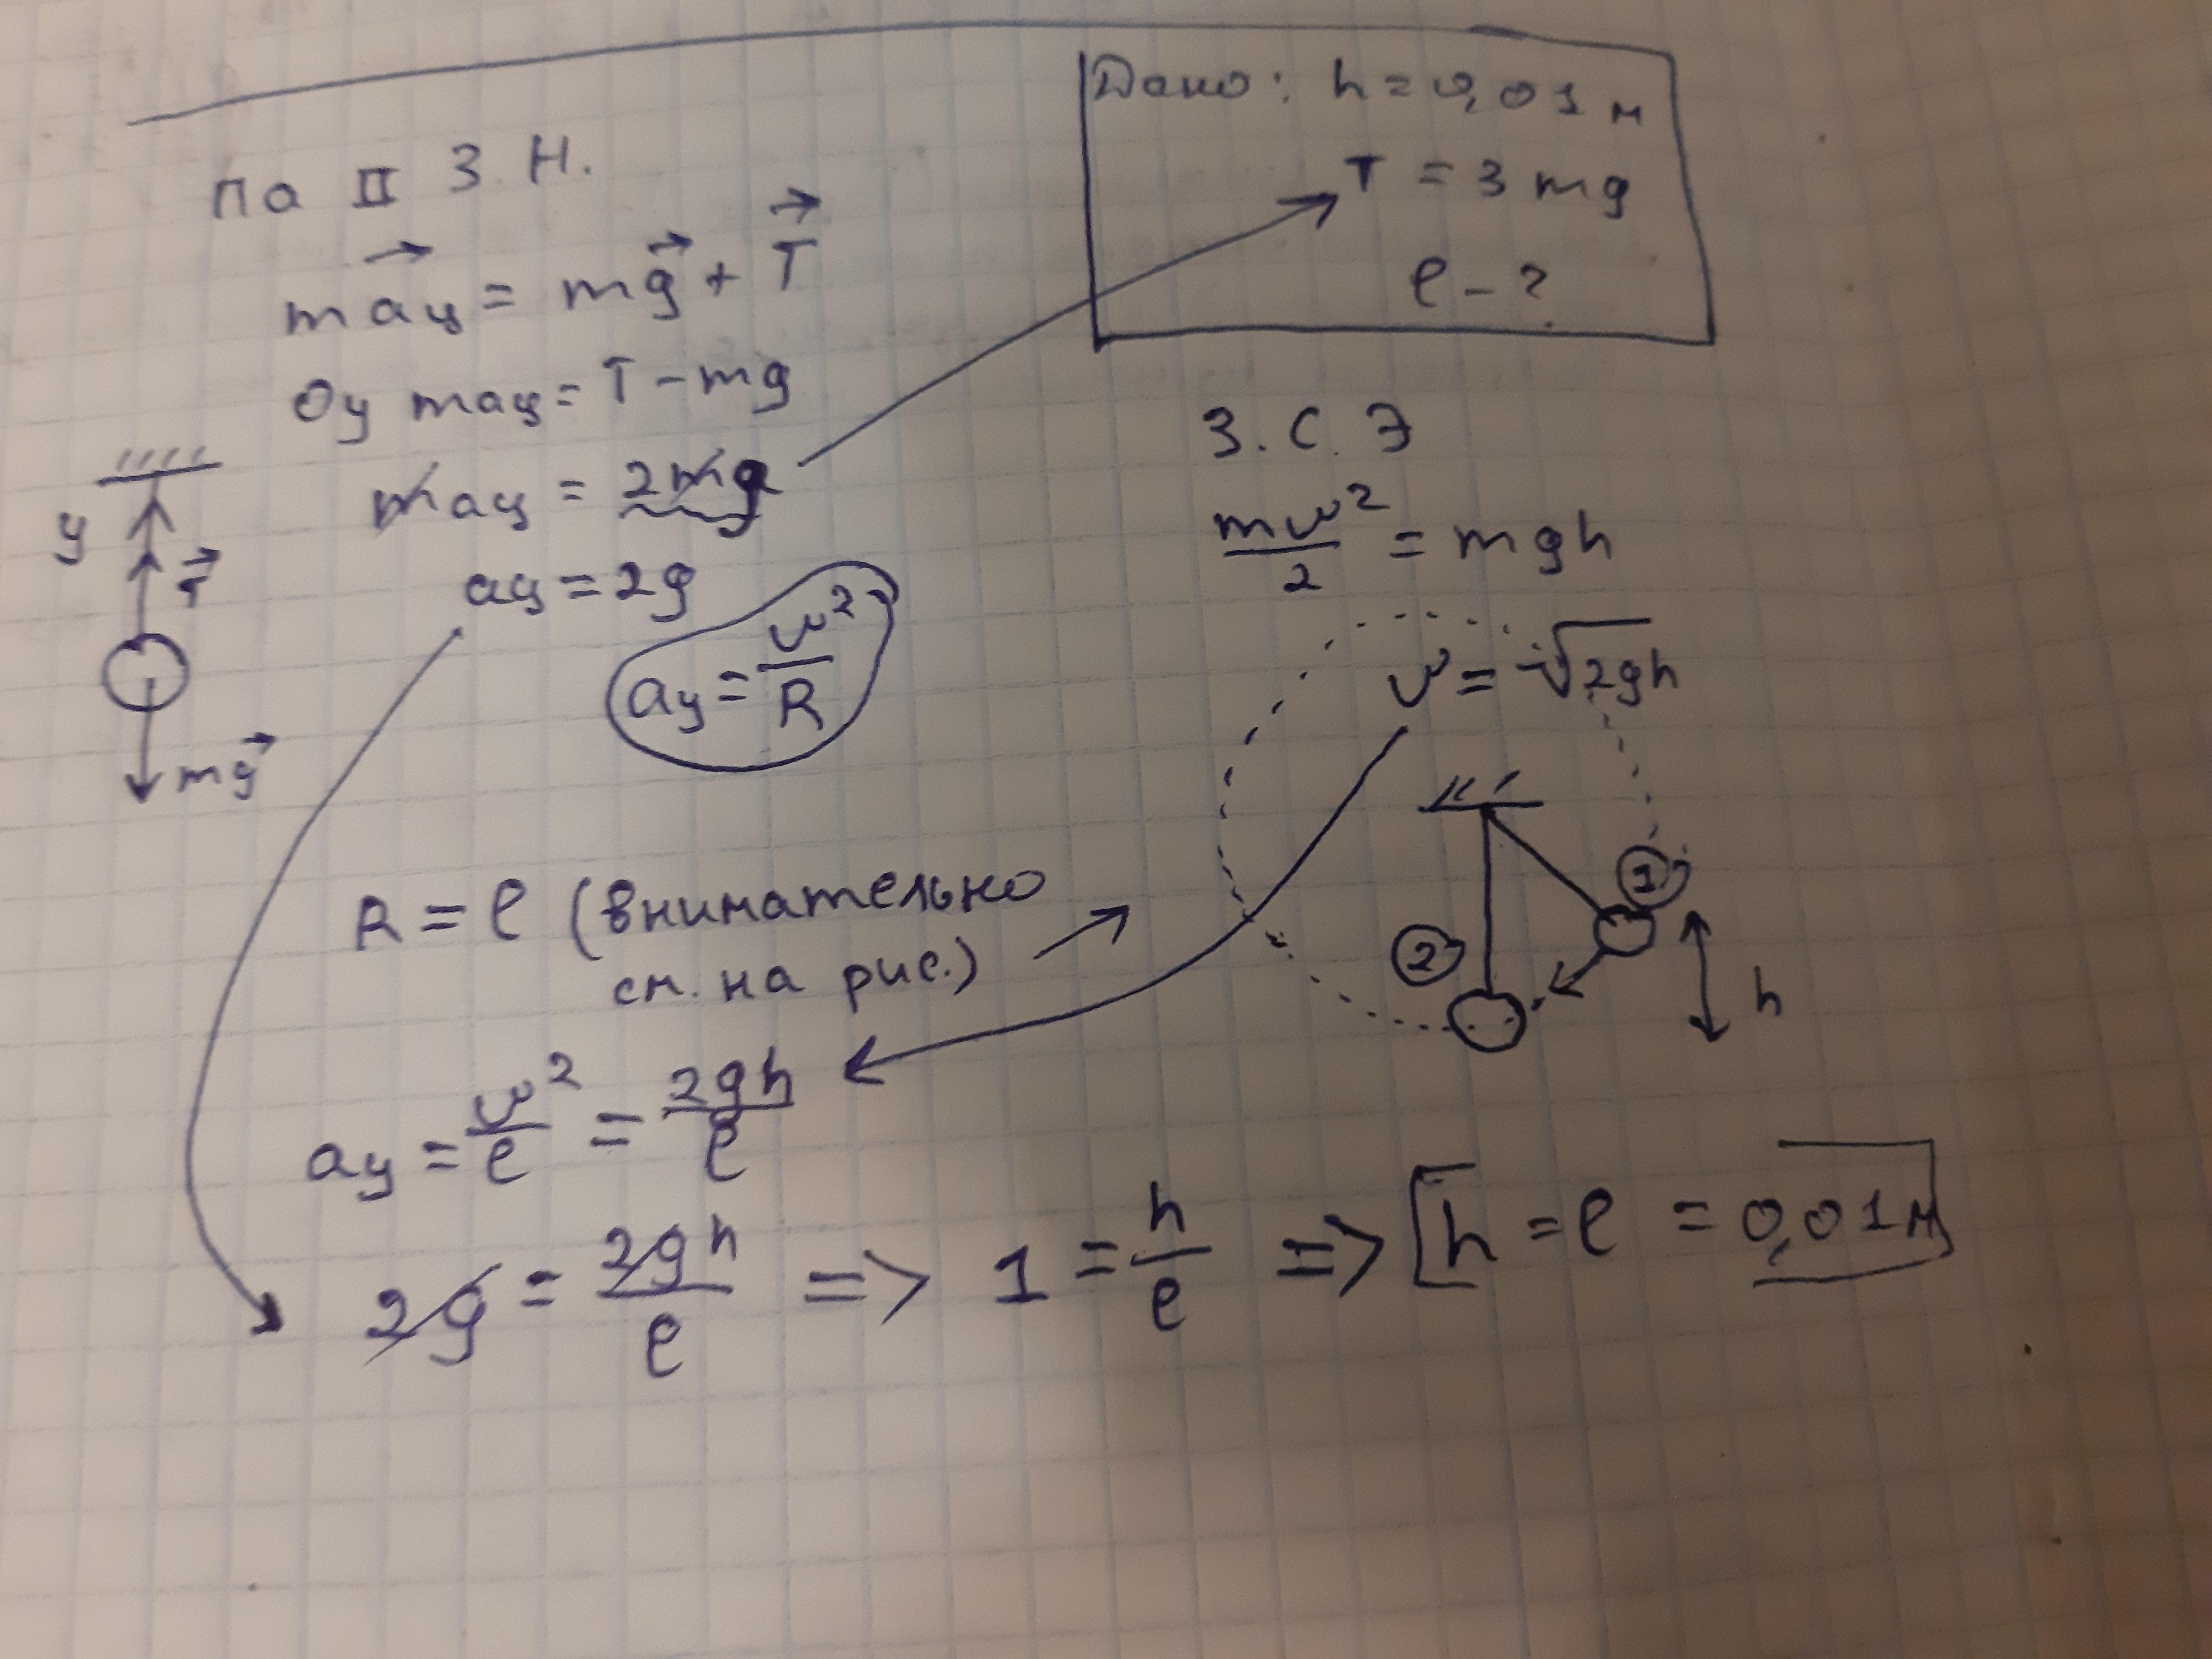 Дано: h = 0,01 м
T = 3 mg
l - ?
По II З. Н.
maц = mg + T
Oy maц = T - mg
maц = 2mg
aц = 2g
aц = v²/R
y
T
mg
З. С. Э
mv²/2 = mgh
v = √2gh
1
2
h
R = l (внимательно
см. на рис.)
aц = v²/l = 2gh/l
2g = 2gh/l => 1 = h/l => h = l = 0,01м